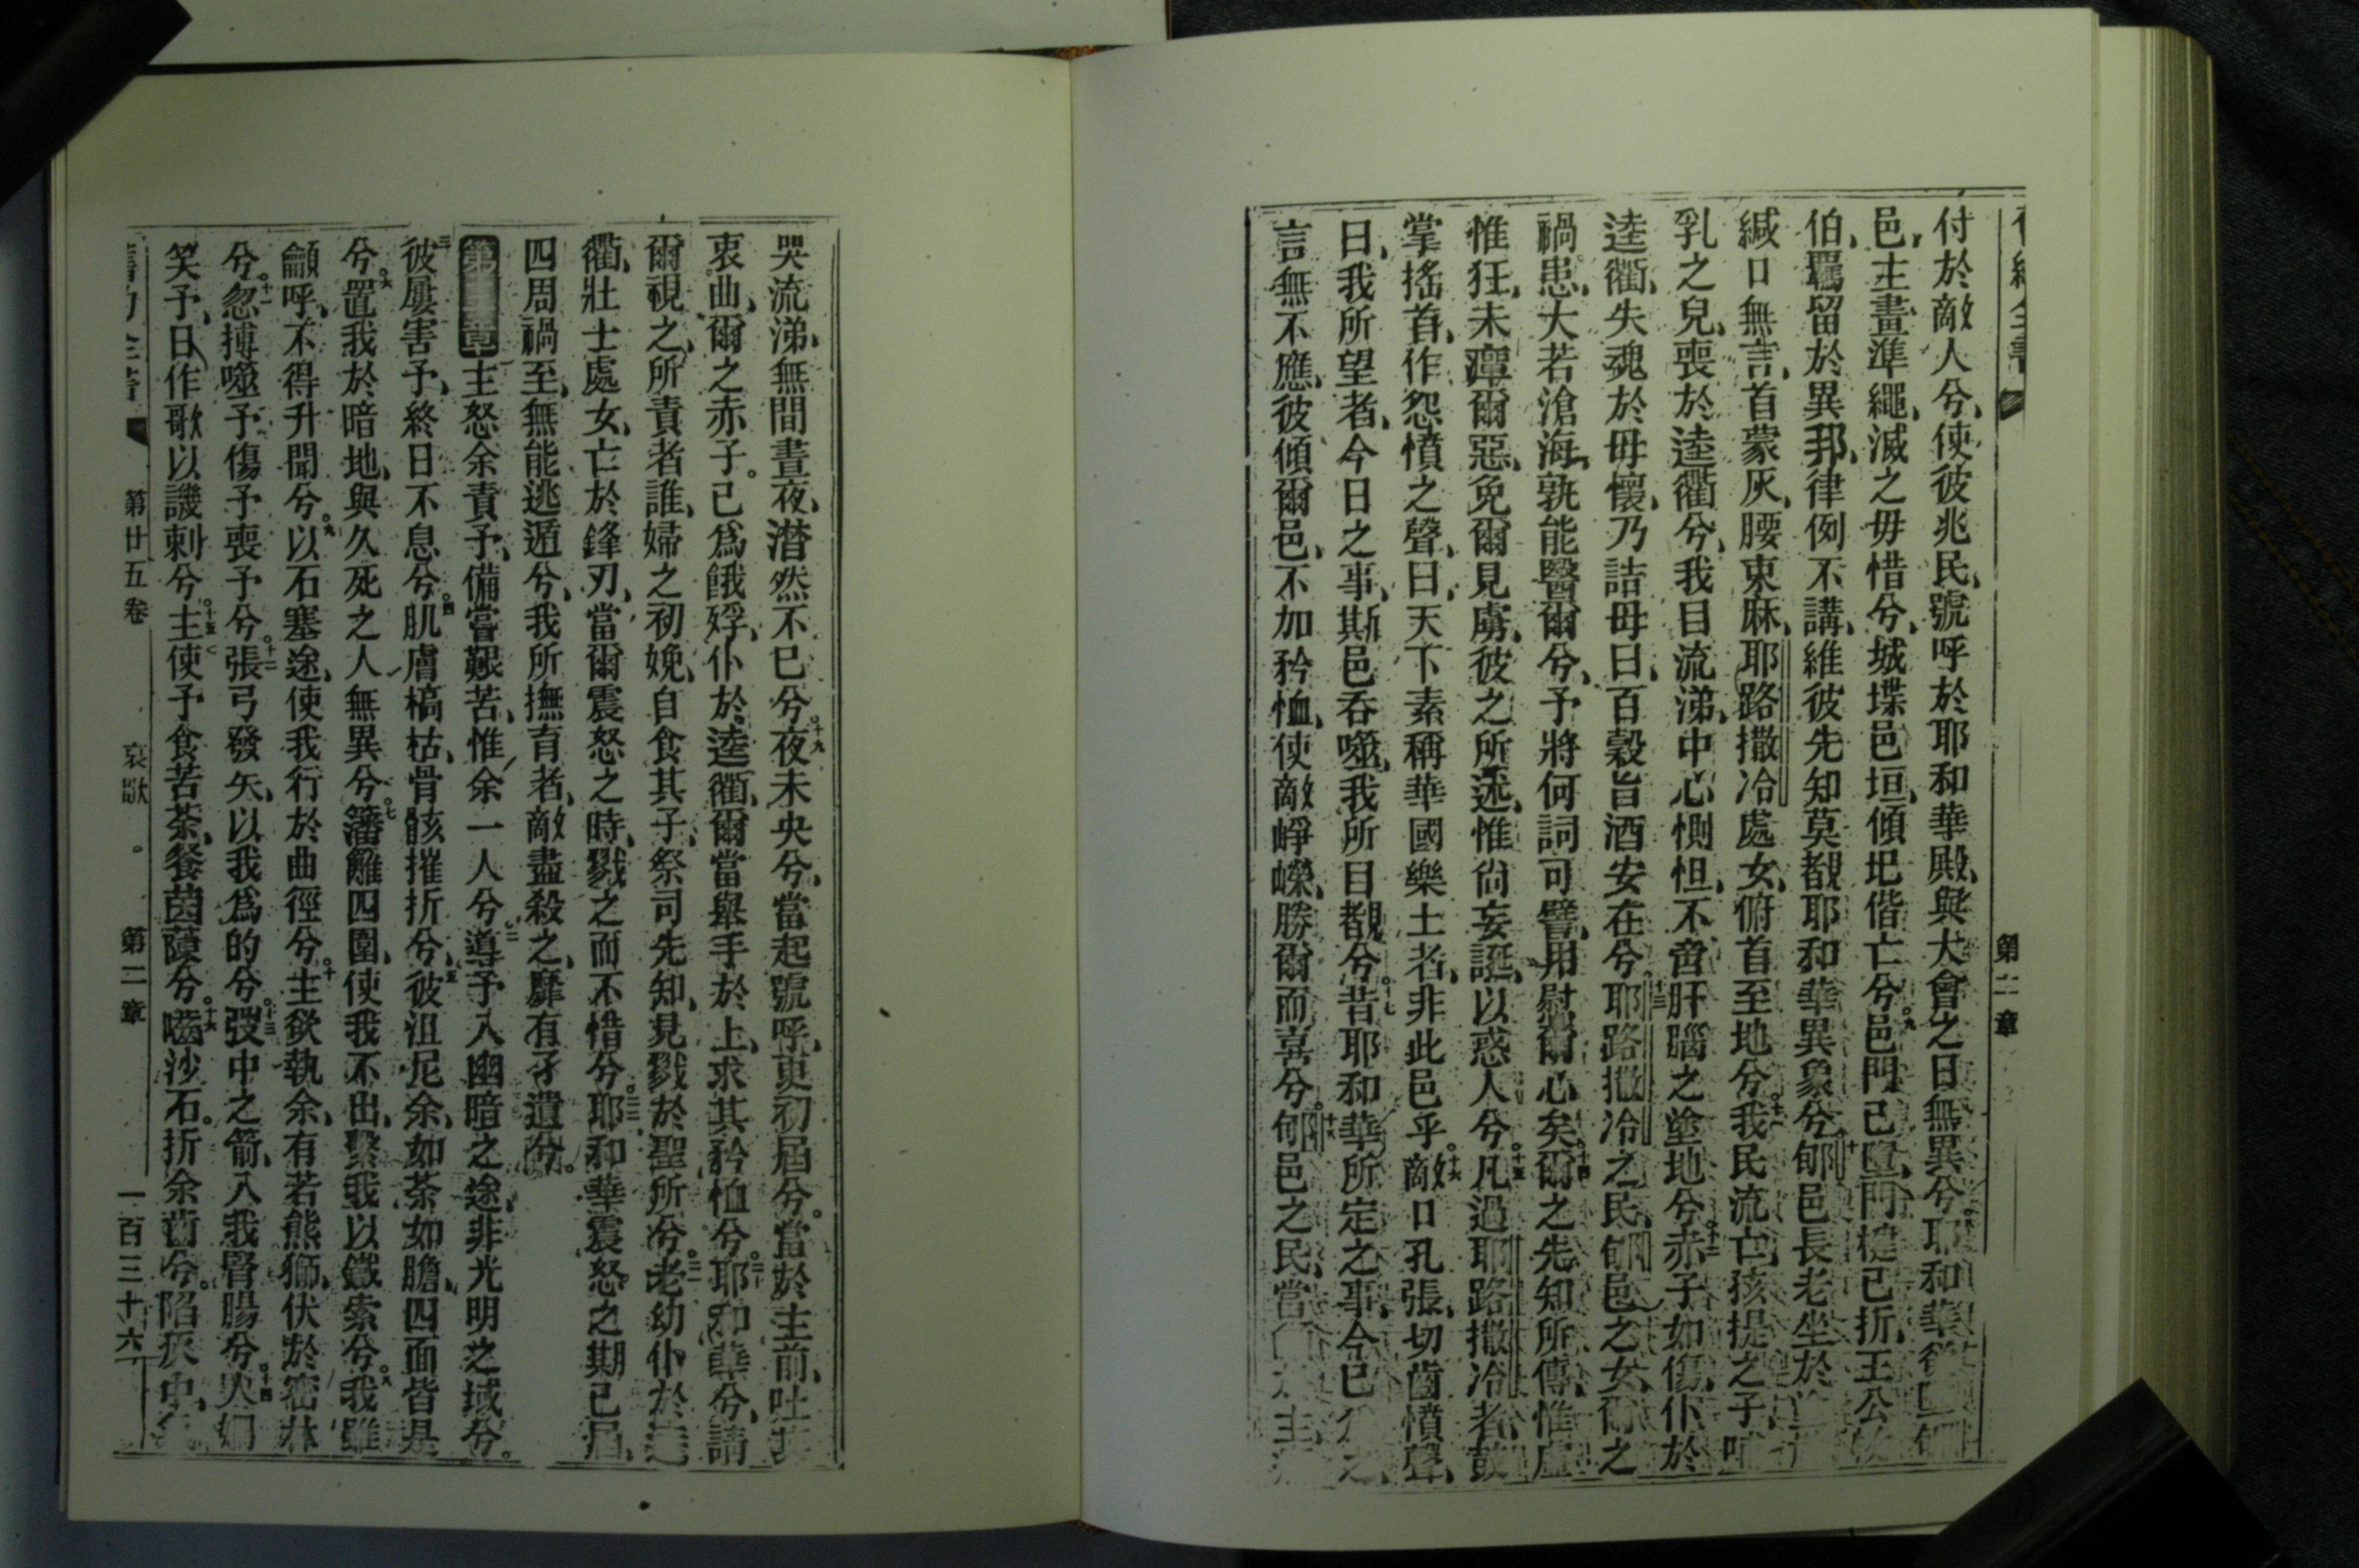 第二章
付於敵人兮、使彼兆民、號呼於耶和華殿、與大會之日無異兮。耶和華
邑、主畫準繩、滅之毋惜兮、城堞邑垣、傾圮偕亡兮。九邑門已墮、門楗已折、王公
伯、羈留於異邦、律例不講、維彼先知莫覩耶和華異象兮。十郇邑長老坐於
緘口無言、首蒙灰、腰束麻、耶路撒冷處女、俯首至地兮。十一我民流亡、孩提之子、哺
乳之兒、喪於逵衢兮、我目流涕、中心惻怛、不啻肝腦之塗地兮。十二赤子如傷、仆於
逵衢、失魂於母懷、乃詰母曰、百穀旨酒安在兮。十三耶路撒冷之民、郇邑之女、爾之
禍患、大若滄海、孰能醫爾兮、予將何詞可譬、用慰爾心矣。十四爾之先知所傳、惟虛
惟狂、未癉爾惡、免爾見虜、彼之所述、惟尚妄誕、以惑人兮。十五凡過耶路撒冷者、鼓
掌搖首、作怨憤之聲、曰、天下素稱華國樂土者、非此邑乎。十六敵口孔張、切齒憤聲、
曰、我所望者、今日之事、斯邑吞噬、我所目覩兮。十七昔耶和華所定之事、今已
言無不應、彼傾爾邑、不加矜恤、使敵崢嶸、勝爾而喜兮。十八郇邑之民、當
哭流涕、無間晝夜、潸然不已兮。十九夜未央兮、當起號呼、更初屆兮。當於主前、吐
衷曲、爾之赤子。已爲餓殍、仆於逵衢、爾當舉手於上、求其矜恤兮。二十耶和華兮、請
爾視之、所責者誰、婦之初娩、自食其子、祭司先知、見戮於聖所兮。二一老幼仆於逵
衢、壯士處女、亡於鋒刃、當爾震怒之時、戮之而不惜兮。二二耶和華震怒之期已屆、
四周禍至、無能逃遁兮、我所撫育者、敵盡殺之、靡有孑遺兮。
第三章主怒余責予、備嘗艱苦、惟余一人兮。二導予入幽暗之途、非光明之域兮。
三彼屢害予、終日不息兮。四肌膚槁枯、骨骸摧折兮、五彼沮尼余、如荼如膽、四面皆是
兮。六置我於暗地、與久死之人無異兮。七籓籬四圍、使我不出、繫我以鐵索兮。八我雖
籲呼、不得升聞兮。九以石塞途、使我行於曲徑兮。十主欲執余、有若熊獅、伏於密林
兮。十一忽搏噬予、傷予喪予兮。十二張弓發矢、以我爲的兮。十三弢中之箭、入我腎腸兮。十四人
笑予、日作歌以譏刺兮。十五主使予食苦荼、餐茵蔯兮。十六嚙沙石。折余齒兮。陷灰中、
第廿五卷 哀歌 第二章 一百三十六